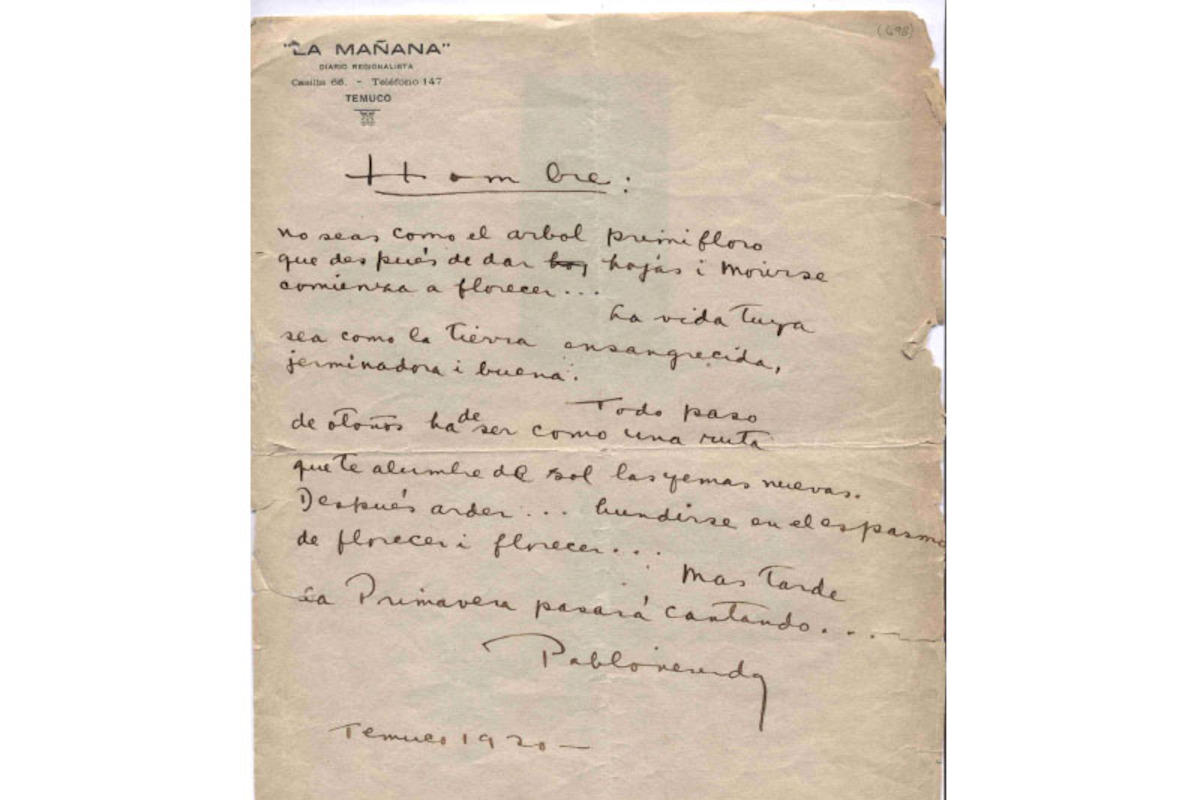 (698)
"LA MAÑANA"
DIARIO REGIONALISTA
Casilla 66. - Teléfono 147
TEMUCO
Hombre:
no seas como el arbol primifloro
que después de dar hoj hojas i morirse
comienza a florecer...
La vida tuya
sea como la tierra ensangrecida,
jerminadora i buena.
Todo paso
de otoños ha de ser como una ruta
que te alumbre de sol las yemas nuevas.
Después arder... hundirse en el espasmo
de florecer i florecer...
Mas tarde
la Primavera pasará cantando...
Pablo neruda
Temuco 1920 —